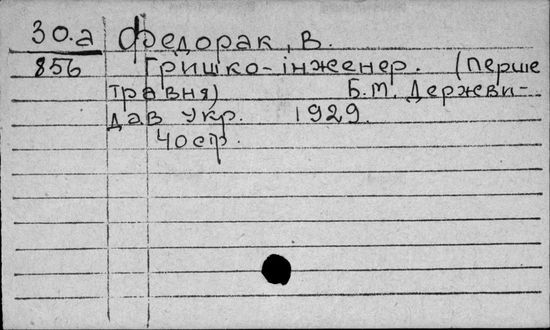 30.а Федорак, В.
856 Гришко-інженер. (Перше
травня) Б.М. Держви-
дав Укр. 1929.
40стр.